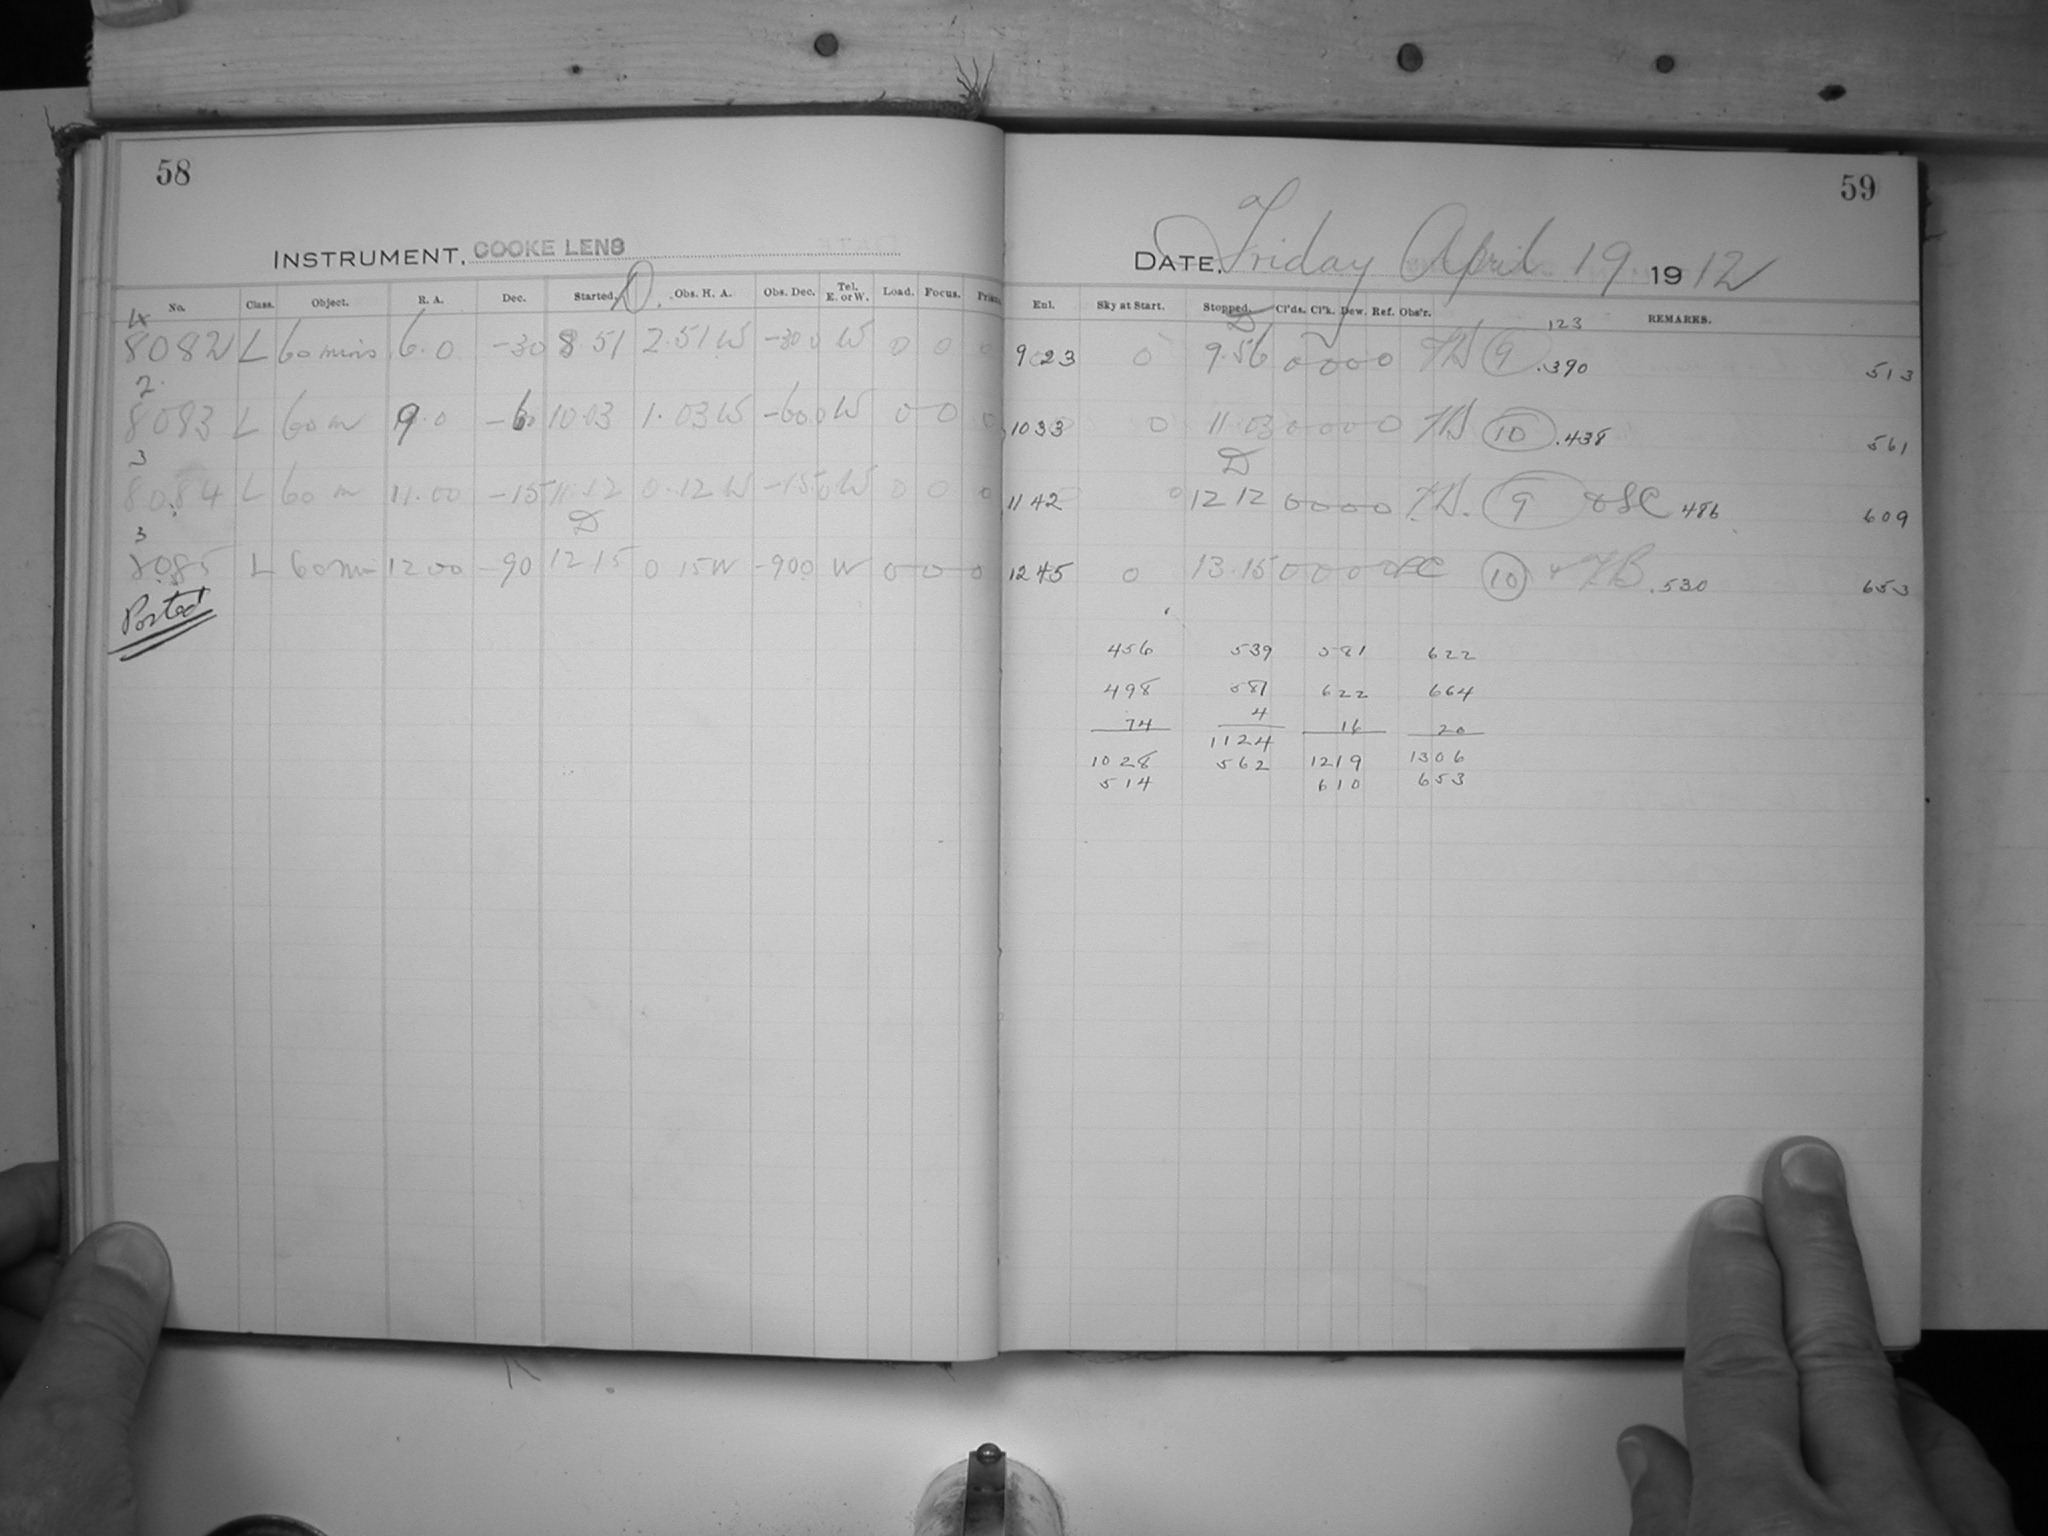 58
INSTRUMENT, COOKE LENS
No. Class. Object. R. A. Dec. Started. D Obs. H. A. Obs. Dec. Tel. E. or W. Load. Focus. Prism
4x
8082 L 60 mins 6.0 -30 8 51 2.51 W -300 W 0 0 0
2
8083 L 60 m 9.0 -60 10.03 1.03 W -600 W 0 0 0
3
8084 L 60 m 11.00 -15 11.12 0.12 W -150 W 0 0 0
D
3
8085 L 60 min 12 00 -90 12 15 0 15 W -900 W 0 0 0
Posted
59
DATE, Friday April 19 1912
Enl. Sky at Start. Stopped. Cl'ds. Cl'k. Dew. Ref. Obs'r. REMARKS.
D 123
9 23 0 9.56 0 0 0 0 9 .390 513
1033 0 11.03 0 0 0 0 10 .438 561
D
1142 0 12 12 0 0 0 0 9 486 609
1245 0 13.15 0 0 0 10 .530 653
456 539 581 622
498 581 622 664
74 4 16 20
1028 1124 1219 1306
514 562 610 653